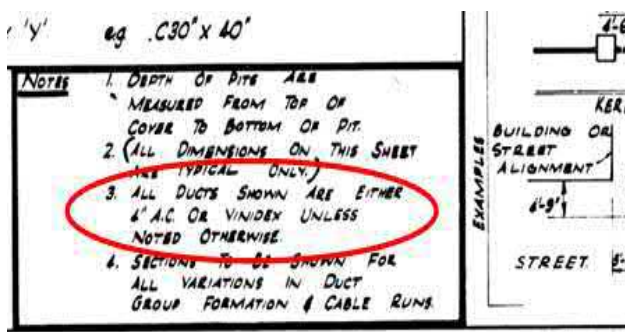 'Y' eg .C30" x 40"
NOTES 1. DEPTH OF PITS ARE
MEASURED FROM TOP OF
COVER TO BOTTOM OF PIT.
2. (ALL DIMENSIONS ON THIS SHEET
ARE TYPICAL ONLY.)
3. ALL DUCTS SHOWN ARE EITHER
4" A.C. OR VINIDEX UNLESS
NOTED OTHERWISE.
4. SECTIONS TO BE SHOWN FOR
ALL VARIATIONS IN DUCT
GROUP FORMATION & CABLE RUNS.
EXAMPLES
4'-6
KER
BUILDING OR
STREET
ALIGNMENT
4'-9"
STREET